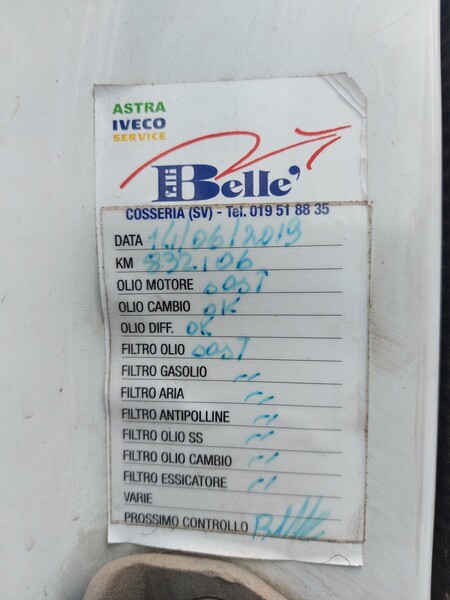 ASTRA
IVECO
SERVICE
F.lli Belle'
COSSERIA (SV) - Tel. 019 51 88 35
DATA 14/06/2019
KM 832.106
OLIO MOTORE SOST
OLIO CAMBIO OK
OLIO DIFF. OK
FILTRO OLIO SOST
FILTRO GASOLIO ~
FILTRO ARIA ~
FILTRO ANTIPOLLINE ~
FILTRO OLIO SS ~
FILTRO OLIO CAMBIO ~
FILTRO ESSICATORE ~
VARIE
PROSSIMO CONTROLLO